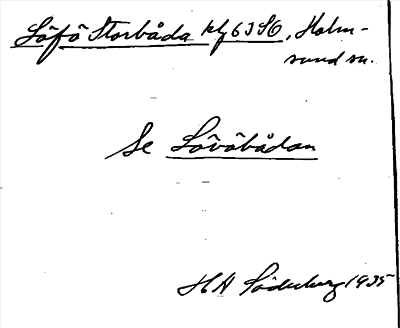 Löfö Storbåda klf 63 SO, Holm-
sund sn.
Se Lövöbådan
HH Söderberg 1935